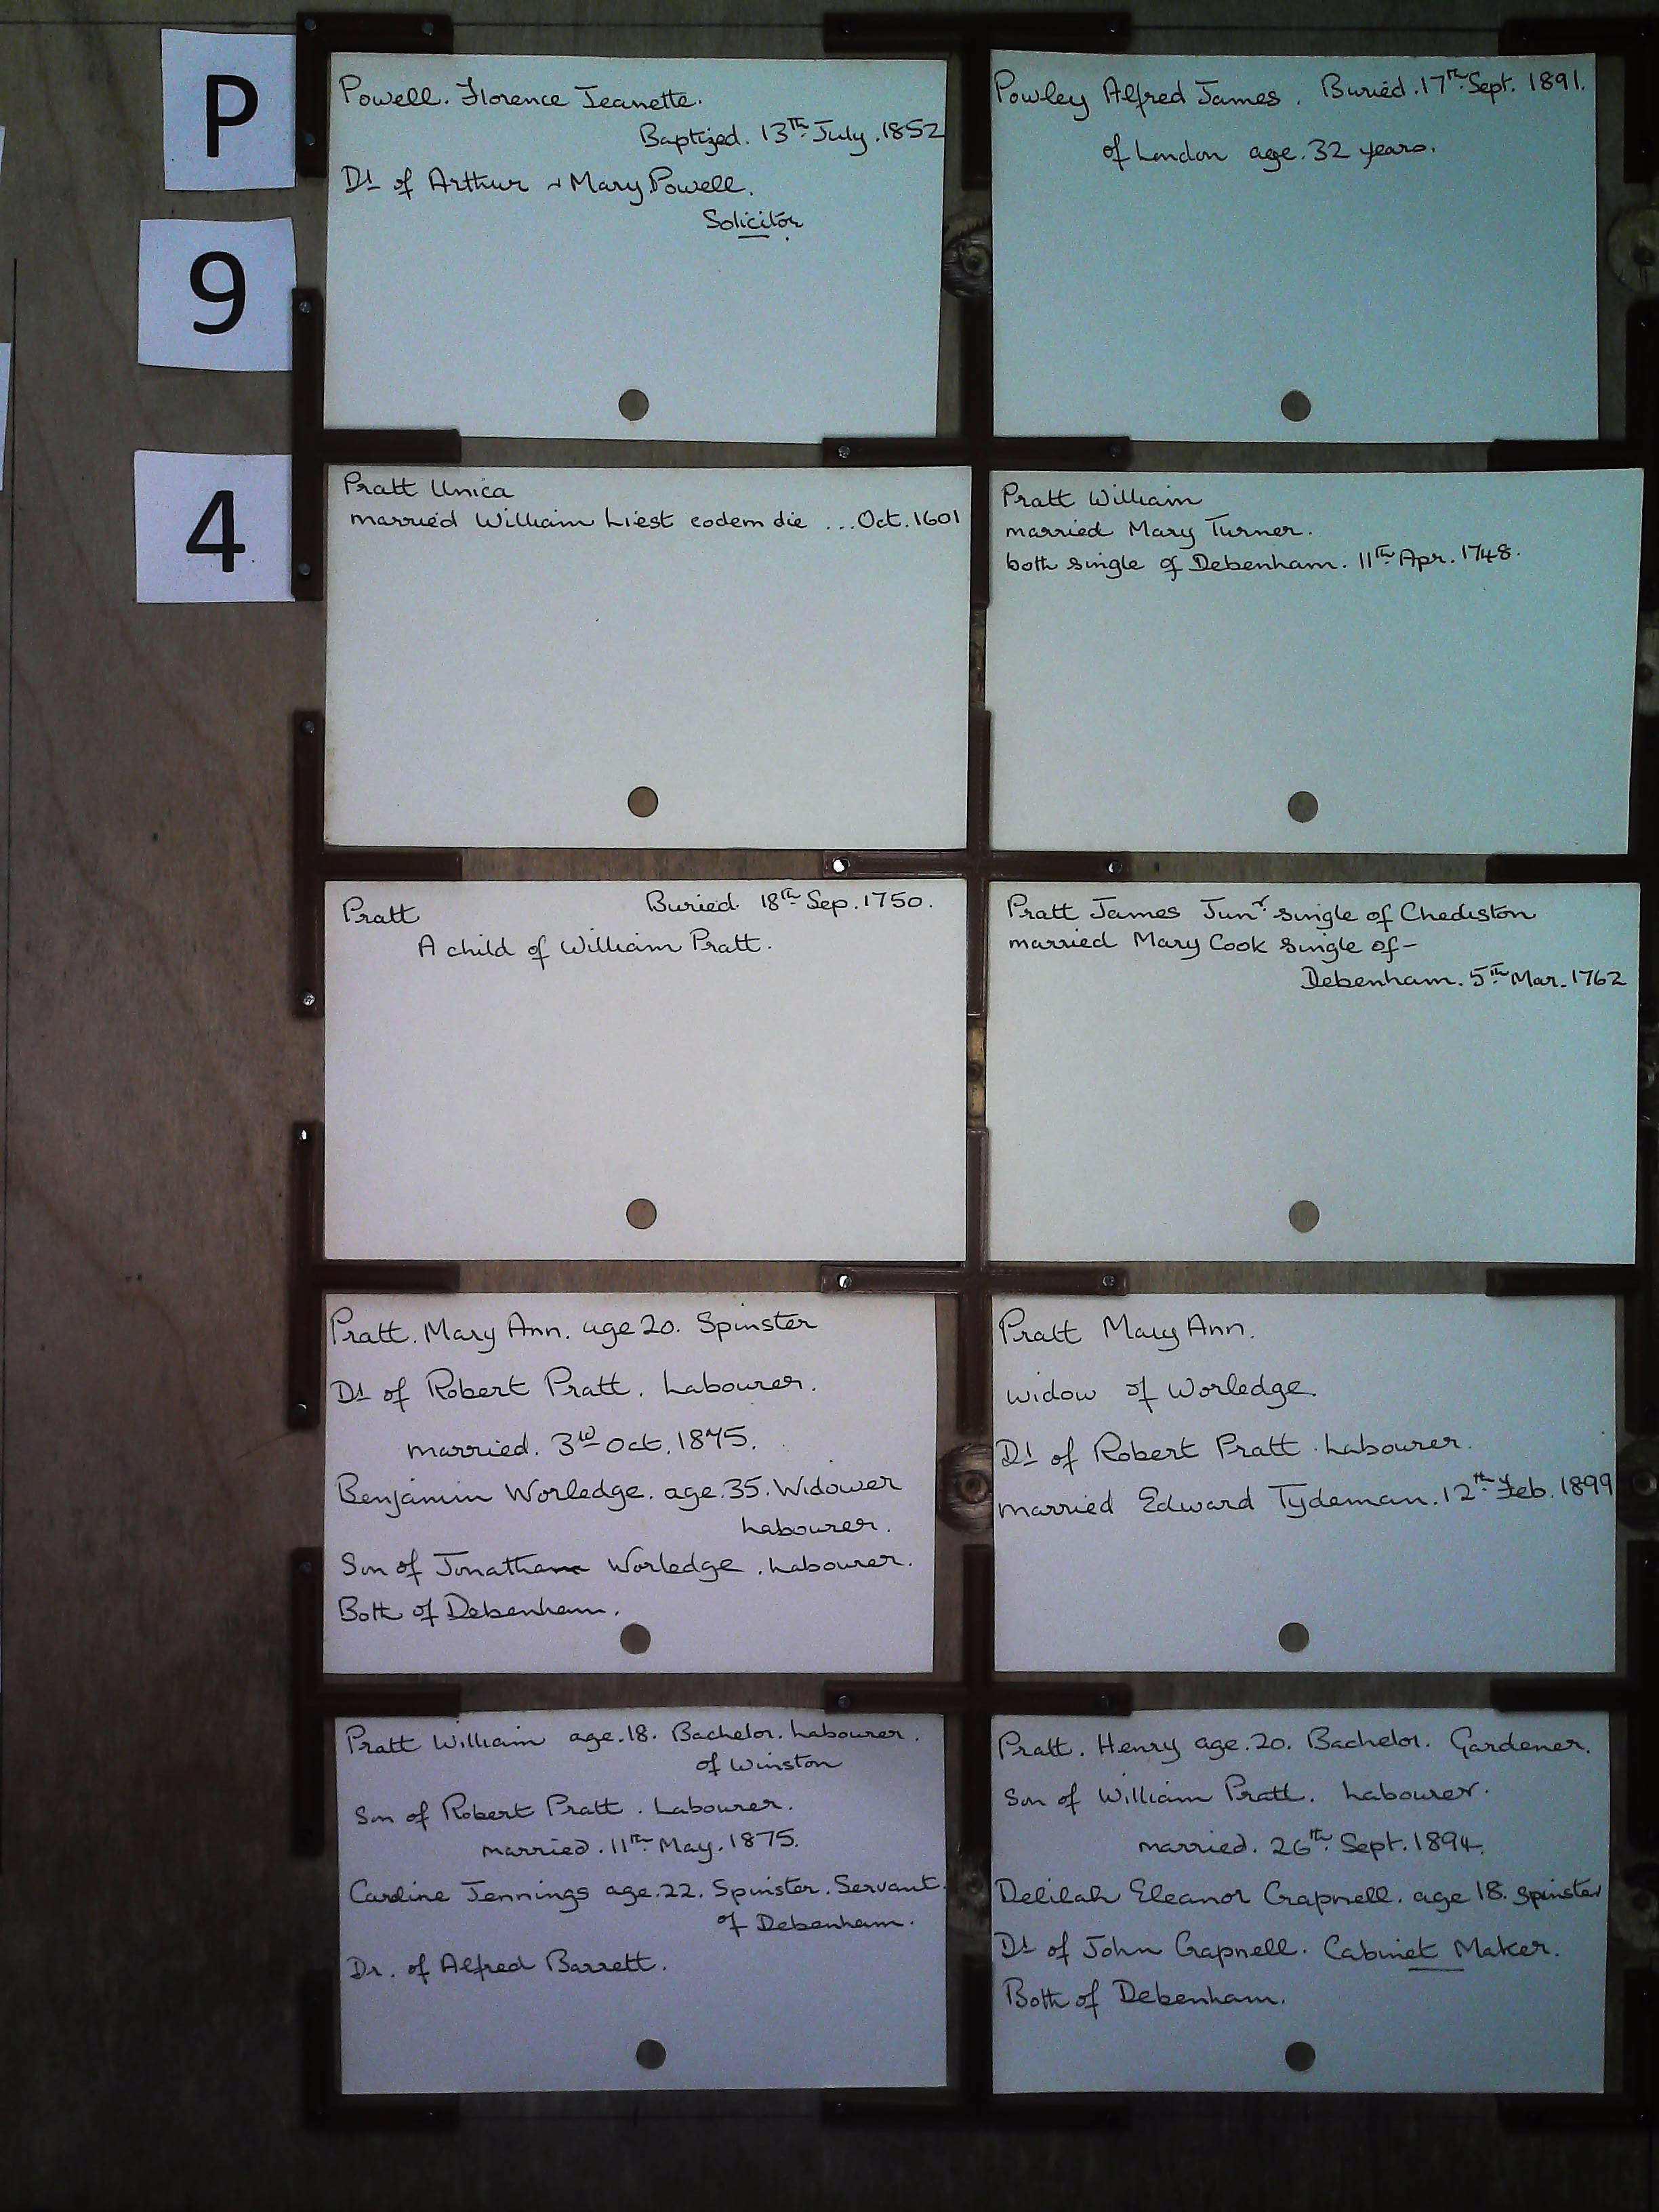 P
9
4
Powell. Florence Jeanette.
Baptized. 13th July. 1852
Dt of Arthur & Mary Powell.
Solicitor
Powley Alfred James. Buried. 17th Sept. 1891.
of London age. 32 years.
Pratt Unica
married William Liest eodem die ... Oct. 1601
Pratt William
married Mary Turner.
both single of Debenham. 11th Apr. 1748.
Pratt Buried 18th Sep. 1750.
A child of William Pratt.
Pratt James Junr single of Chediston
married Mary Cook single of-
Debenham. 5th Mar. 1762
Pratt. Mary Ann. age 20. Spinster
Dt of Robert Pratt. Labourer.
married. 3rd Oct. 1875.
Benjamin Worledge. age. 35. Widower
Labourer.
Son of Jonathan Worledge. Labourer.
Both of Debenham.
Pratt Mary Ann.
widow of Worledge.
Dt of Robert Pratt. Labourer.
married Edward Tydeman. 12th Feb. 1899
Pratt William age. 18. Bachelor. Labourer.
of Winston
Son of Robert Pratt. Labourer.
married. 11th May. 1875.
Caroline Jennings age. 22. Spinster. Servant.
of Debenham.
Dr. of Alfred Barrett.
Pratt. Henry age. 20. Bachelor. Gardener.
Son of William Pratt. Labourer.
married. 26th Sept. 1894.
Delilah Eleanor Crapnell. age 18. Spinster
Dt of John Crapnell. Cabinet Maker.
Both of Debenham.